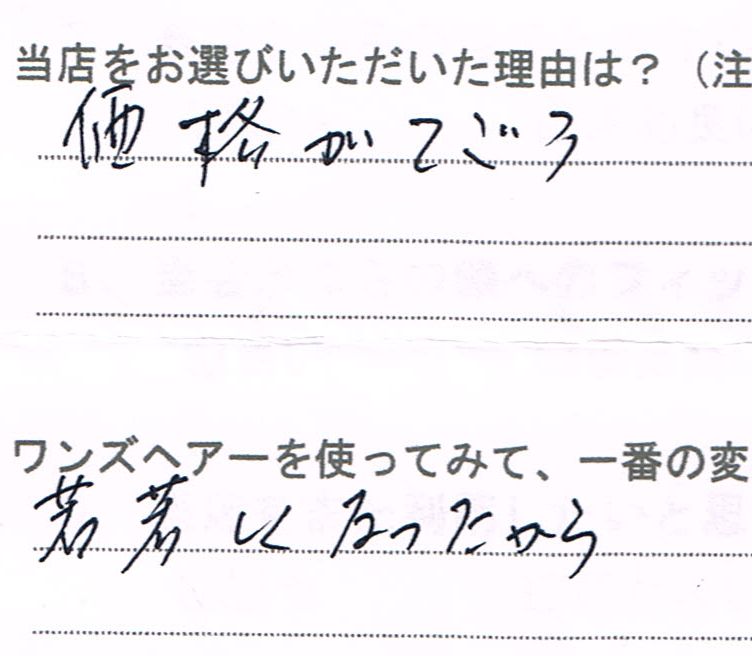 当店をお選びいただいた理由は？（注
価格がてごろ
ワンズヘアーを使ってみて、一番の変
若若しくなったから